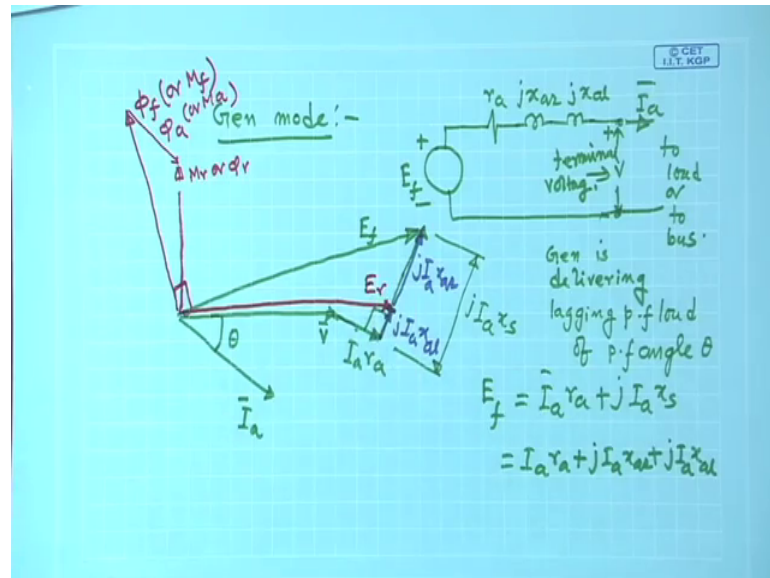 © CET
I.I.T. KGP
Φf (or Mf)
Φa (or Ma)
Mr or Φr
Gen mode:-
ra jxar jxal
Īa
+
Ef
-
+
terminal voltage. → V
to load or to bus.
Ef
Er
jIaxar
jIaxs
jIaxal
V̄
Iara
θ
Īa
Gen is
delivering
lagging p.f load
of p.f angle θ
Ef = Īara + jIaxs
= Iara + jIaxal + jIaxal